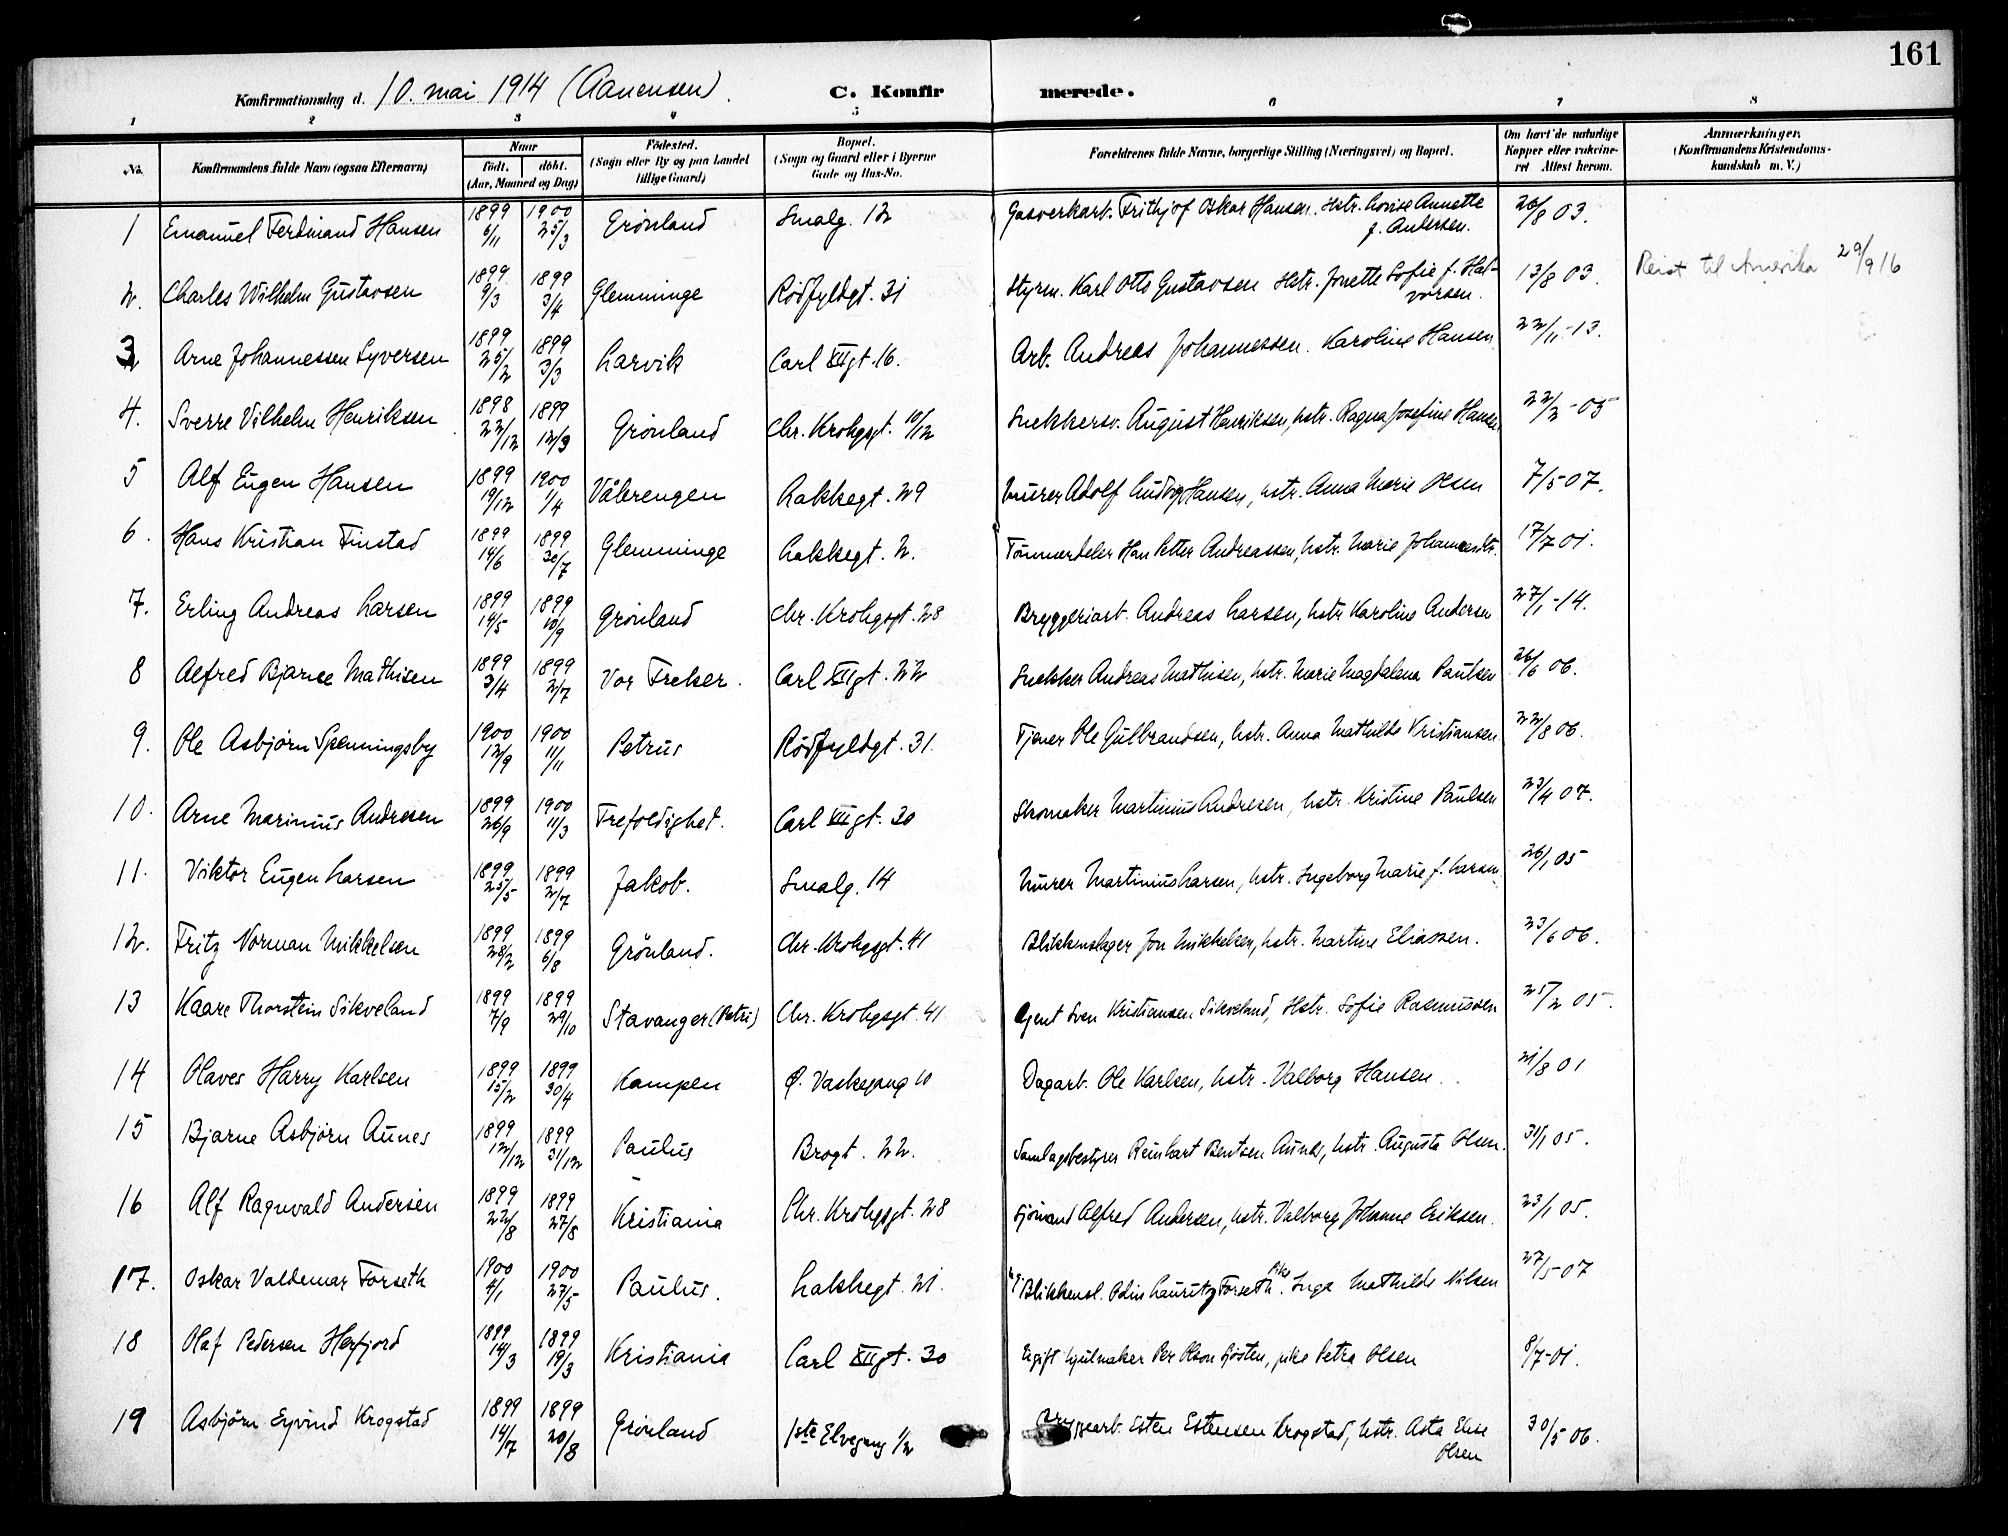 161
Konfirmationsdag d. 10. mai 1914 (Aanensen).
C. Konfirmerede.
1 2 3 4 5 6 7 8
No. Konfirmandens fulde Navn (ogsaa Efternavn) Naar født. døbt. (Aar, Maaned og Dag) Fødested. (Sogn eller By og paa Landet tillige Gaard) Bopæl. (Sogn og Gaard eller i Byerne Gade og Hus-No. Forældrenes fulde Navne, borgerlige Stilling (Næringsvei) og Bopæl. Om havt de naturlige Kopper eller vakcineret Attest herom. Anmærkninger. (Konfirmandens Kristendomskundskab m. V.)
1 Emanuel Ferdinand Hansen 1899 6/11 1900 25/3 Grönland Smalg. 12 Gasverkarb. Frithjof Oskar Hansen. Hstr. Lovise Annette f. Andersen. 26/8 03.
2. Charles Wilhelm Gustavsen 1899 9/3 1899 3/4 Glemminge Rödfyldgt. 31 Styrm. Karl Otto Gustavsen Hstr. Jonette Sofie f. Halvorsen. 13/8 03. Reist til Amerika 29/9 16
3 Arne Johannessen Syversen 1899 25/2 1899 3/3 Larvik Carl XIIgt. 16. Arb. Andreas Johannessen. Karoline Hansen 22/11-13.
4. Sverre Vilhelm Henriksen 1898 22/12 1899 12/3 Grönland Chr. Krohgsgt. 10/12 Snekkersv. August Henriksen, hstr. Ragna Josefine Hansen 22/2-05
5 Alf Eugen Hansen 1899 19/12 1900 1/4 Vålerengen Lakkegt. 29 Murer Adolf Ludvig Hansen, hstr. Anna Marie Olsen 7/5-07.
6. Hans Kristian Finstad 1899 14/6 1899 30/7 Glemminge Lakkegt. 2. Tömmerdeler Han Petter Andreassen, hstr. Marie 17/7 01.
7. Erling Andreas Larsen 1899 14/5 1899 10/9 Grönland Chr. Krohgsgt. 28 Bryggeriarb. Andreas Larsen, hstr Karoline Andersen 27/1-14.
8 Alfred Bjarne Mathisen 1899 3/4 1899 2/7 Vor Frelser. Carl XIIgt. 22 Snekker Andreas Mathisen, hstr. Marie Magdalena Paulsen 26/6 06.
9. Ole Asbjørn Spenningsby 1900 12/9 1900 11/11 Petrus Rödfyldgt. 31. Tjener Ole Gulbrandsen, hstr. Anna Mathilde Kristiansen 22/8 06.
10. Arne Marinius Andresen 1899 26/9 1900 11/3 Trefoldighet. Carl XIIgt. 30 Skomaker Martinius Andresen, hstr. Kristine Paulsen 23/4 07.
11. Viktor Eugen Larsen 1899 25/5 1899 2/7 Jakob. Smalg. 14 Murer Martinius Larsen, hstr. Ingeborg Marie f. Larsen 26/1 05
12. Fritz Norman Mikkelsen 1899 28/2 1899 6/8 Grönland. Chr. Krohgsgt. 41 Blikkenslager Jon Mikkelsen, hstr. Martine Eliassen. 23/6 06.
13 Kaare Thorstein Sikveland 1899 7/9 1899 29/10 Stavanger (Petri) Chr. Krohgsgt. 41 Agent Sven Kristiansen Sikveland, Hstr. Sofie Rasmussen 25/2 05.
14 Olaves Harry Karlsen 1899 15/2 1899 30/4 Kampen Ø. Vaskegang 10 Dagarb. Ole Karlsen, hstr. Valborg Hansen. 21/8 01
15 Bjarne Asbjörn Aunes 1899 12/12 1899 31/12 Paulus Brogt. 22. Samlagsbestyrer Reinhart Bentsen Aunes, hstr. Augusta Olsen. 31/1 05.
16 Alf Ragnvald Andersen 1899 22/8 1899 27/8 Kristiania Chr. Krohgsgt. 28 Sjömand Alfred Andersen, hstr. Valborg Johanne Eriksen. 23/1 05.
17. Oskar Valdemar Forseth 1900 4/1 1900 27/5 Paulus. Lakkegt. 21. Blikkensl. Odin Lauritz Forseth. Pike Inga Mathilde Nilsen 27/5-07
18 Olaf Pedersen Herfjord 1899 14/3 1899 19/3 Kristiania Carl XIIgt. 30 Ugift hjulmaker Per Olson Sjösten, pike Petra Olsen 8/7-01.
19 Asbjörn Eyvind Krogstad 1899 14/7 1899 20/8 Grönland 1ste Elvegang 1/2 Estensen Krogstad, hstr. Asta Elise Olsen 30/5 06.